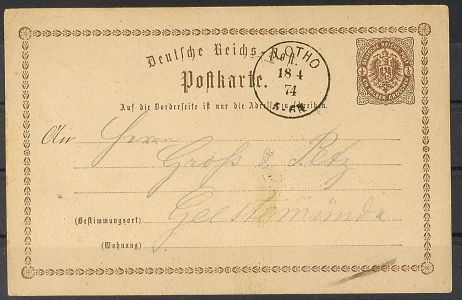 Deutsche Reichs-Post.
Postkarte.
VLOTHO
18 4
74
5-6N
Auf die Vorderseite ist nur die Adresse zu schreiben.
An Herrn
Gross & Petz
(Bestimmungsort) Geestemünde
(Wohnung)